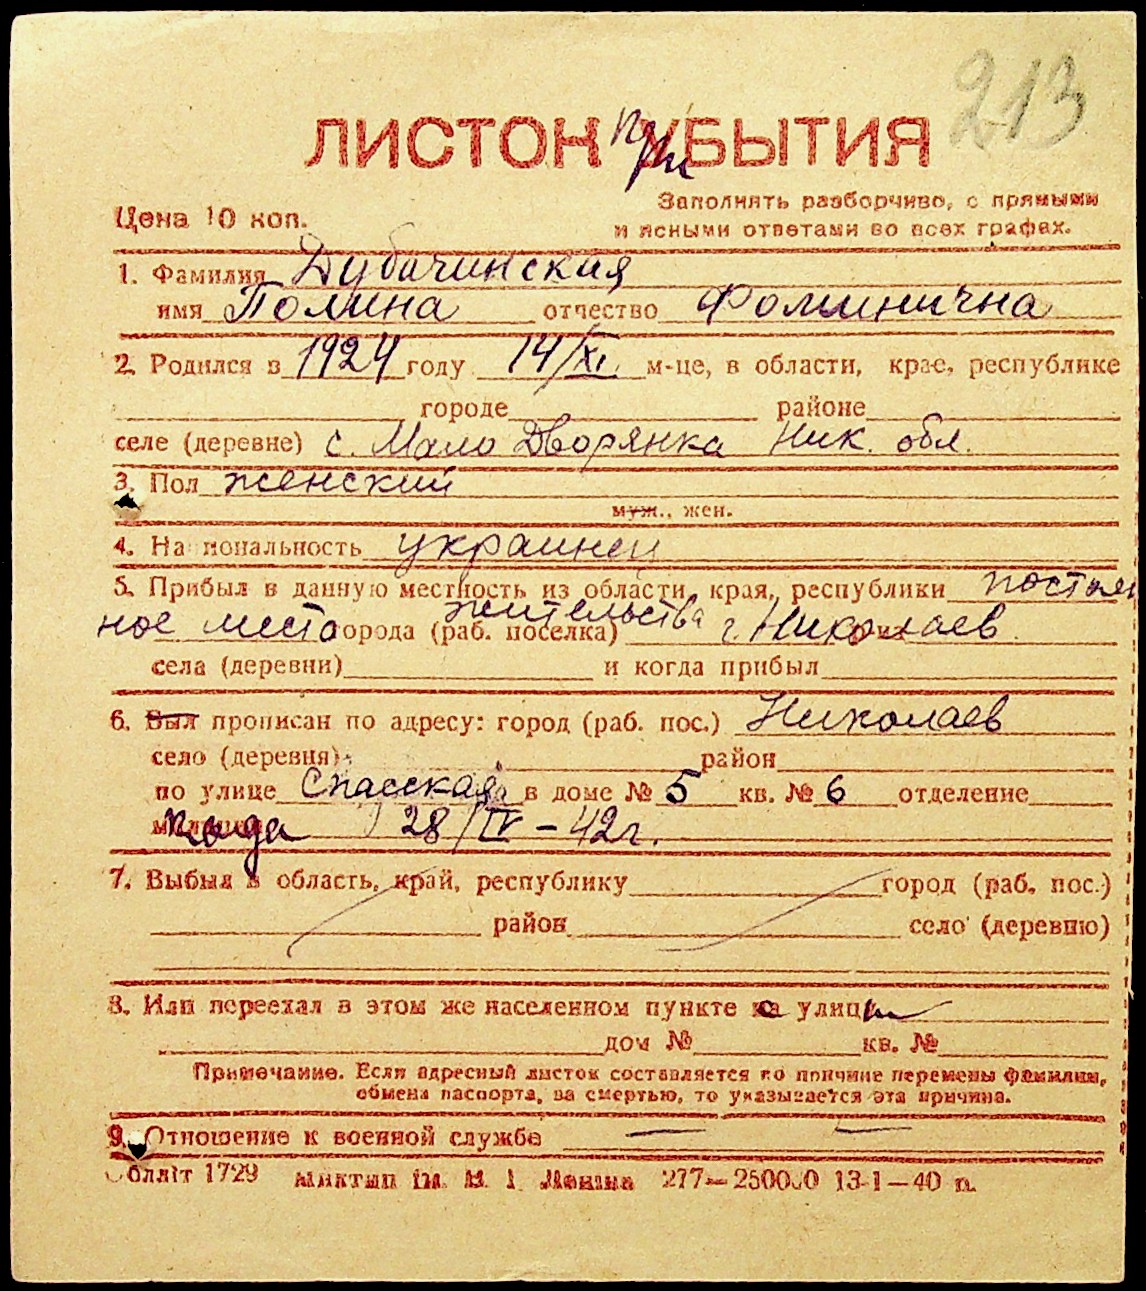 213
ЛИСТОК при УБЫТИЯ
Цена 10 коп.
Заполнять разборчиво, с прямыми
и ясными ответами во всех графах.
1. Фамилия Дубачинская
имя Полина отчество Фоминична
2. Родился в 1924 году 14/XI м-це, в области, крае, республике
городе районе
селе (деревне) с. Мало Дворянка Ник. обл.
3. Пол женский
муж., жен.
4. Национальность украинец
5. Прибыл в данную местность из области, края, республики постоян
ное место города (раб. поселка) жительства г. Николаев
села (деревни) и когда прибыл
6. Был прописан по адресу: город (раб. пос.) Николаев
село (деревня) район
по улице Спасская в доме № 5 кв. № 6 отделение
милиции 28/IV – 42 г.
7. Выбыл в область, край, республику город (раб. пос.)
район село (деревню)
8. Или переехал в этом же населенном пункте на улицу
дом № кв. №
Примечание. Если адресный листок составляется по причине перемены фамилии,
обмена паспорта, за смертью, то указывается эта причина.
9. Отношение к военной службе — —
Обліт 1729 Миктип ім. В. І. Леніна 277—250000 13-1—40 п.